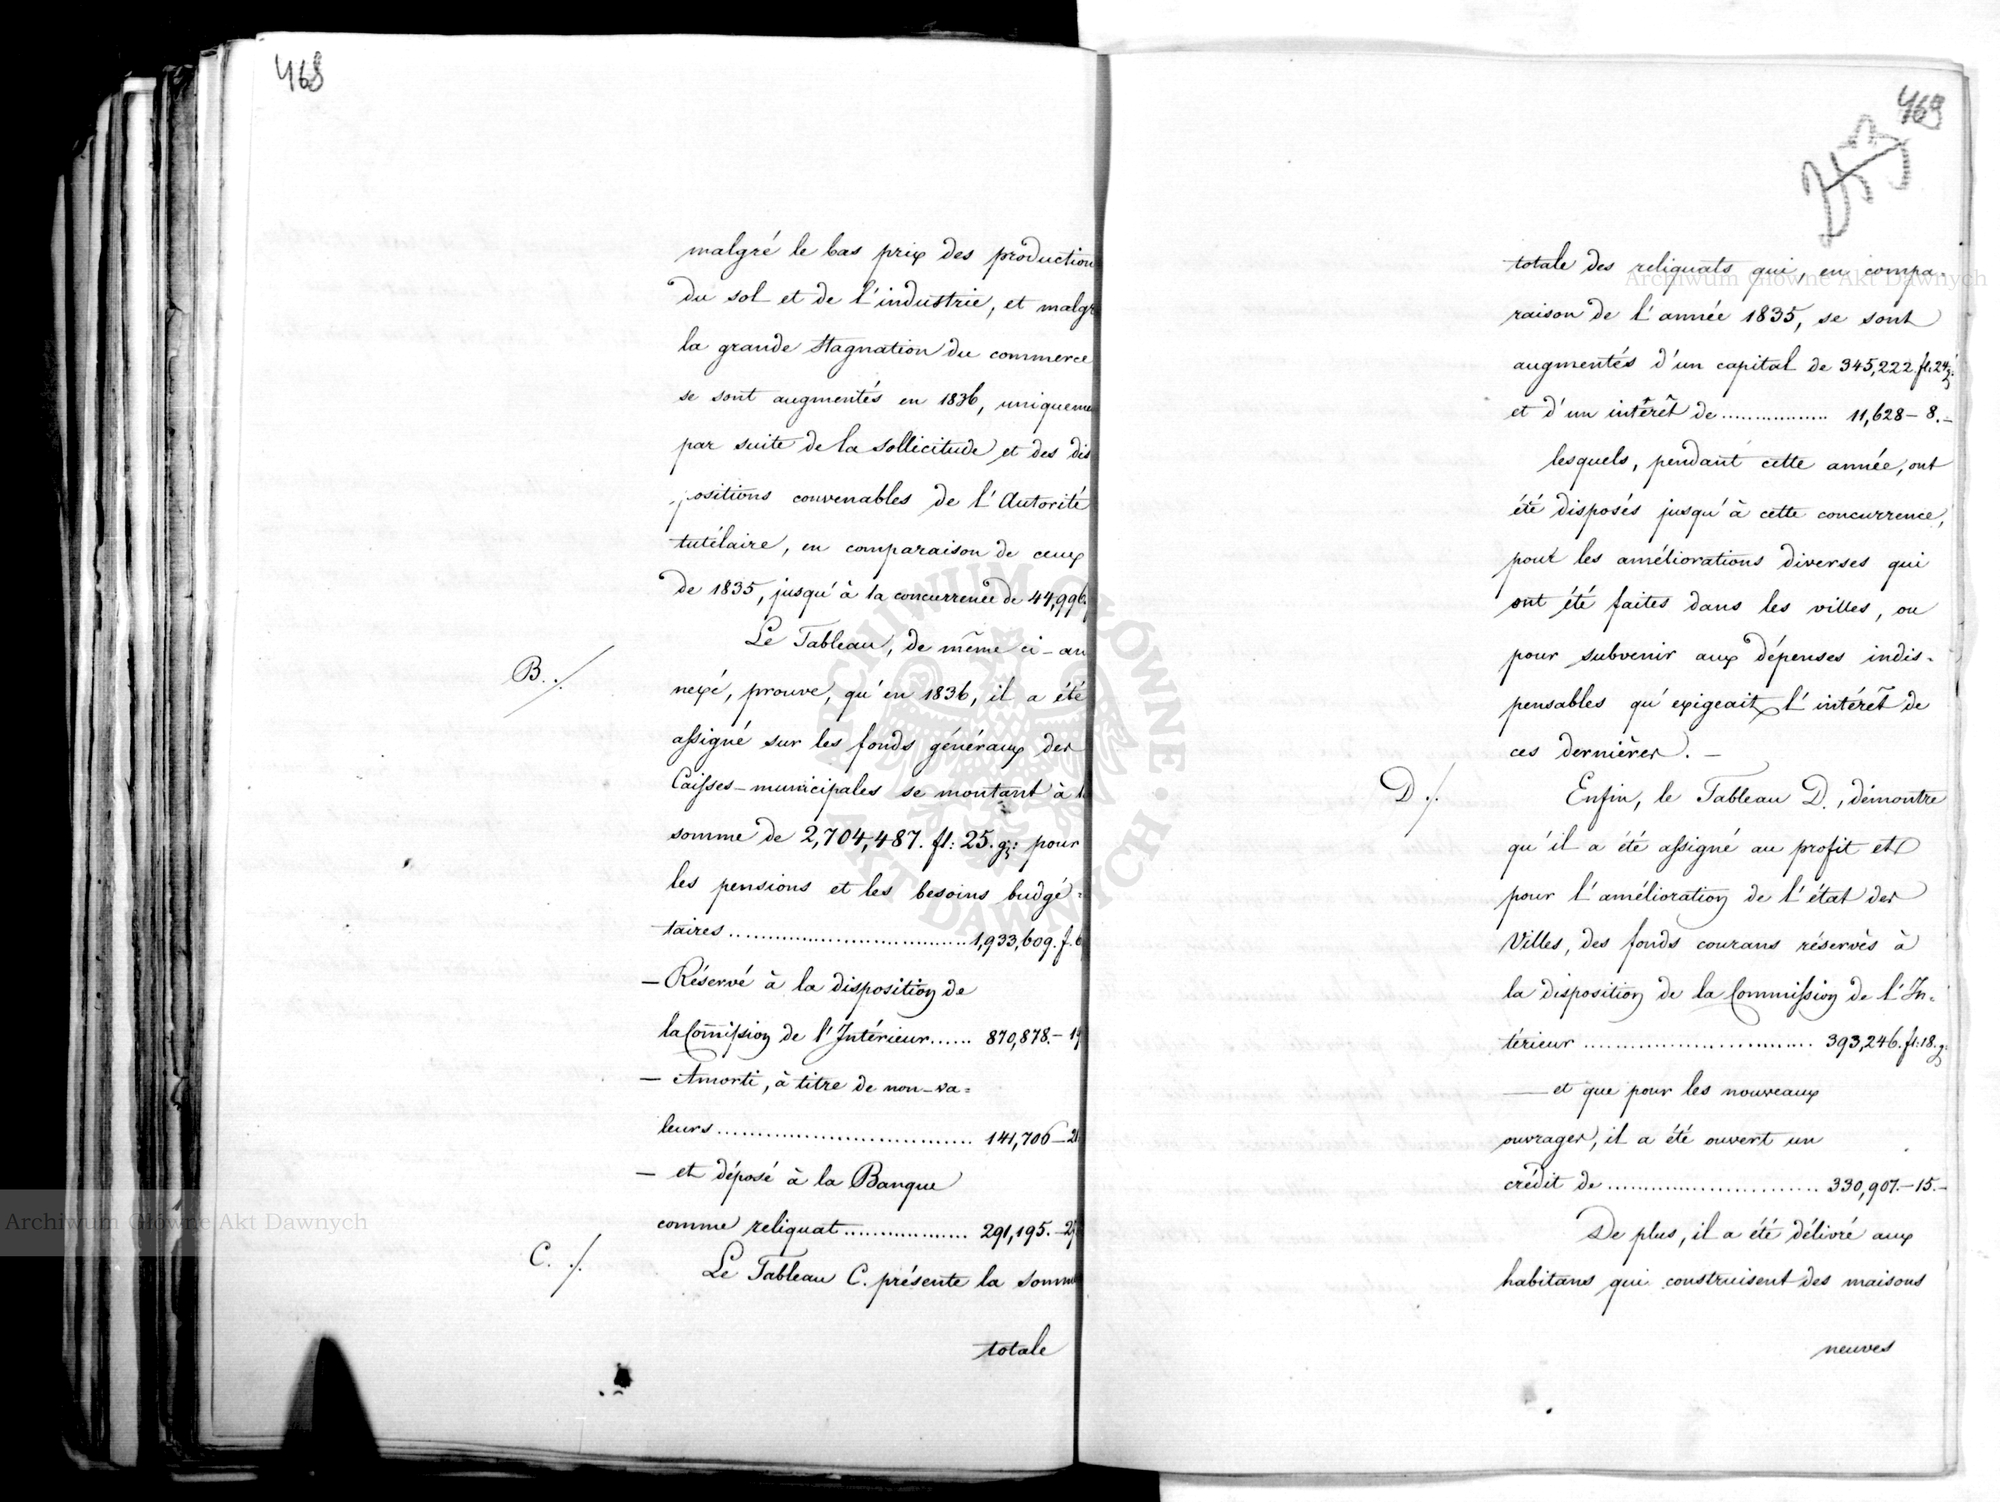 468
malgré le bas prix des production
du sol et de l'industrie, et malgr
la grande stagnation du commerce
se sont augmentés en 1836, uniqueme
par suite de la sollicitude et des dis
positions convenables de l'Autorité
tutélaire, en comparaison de ceux
de 1835, jusqu'à la concurrence de 44,996.
Le Tableau, de même ci-an
B. ./.
nexé, prouve, qu'en 1836, il a été
assigné sur les fonds généraux des
Caisses-municipales se montant à l
somme de 2,704,487. fl: 25. g: pour
les pensions et les besoins budgé=
taires .......... 1,933,609. f. 6
— Réservé à la disposition de
la Comission de l'Intérieur...... 870,878.- 19
— Amorti, à titre de non-va=
leurs .......... 141,706 — 2
— et déposé à la Banque
comme reliquat .......... 291,195. — 2
C. ./.
Le Tableau C. présente la somm
totale
469
totale des reliquats qui, en compa-
raison de l'année 1835, se sont
augmentés d'un capital de 345,222. fl: 24 g:
et d'un intérêt de .......... 11,628 - 8. -
lesquels, pendant cette année, ont
été disposés jusqu'à cette concurrence,
pour les améliorations diverses qui
ont été faites dans les villes, ou
pour subvenir aux dépenses indis-
pensables qu'exigeait l'intérêt de
ces dernières. —
D ./.
Enfin, le Tableau D., démontre
qu'il a été assigné au profit et
pour l'amélioration de l'état des
Villes, des fonds courans réservés à
la disposition de la Commission de l'In-
térieur .......... 393,246. fl: 18. g:
— et que pour les nouveaux
ouvrages, il a été ouvert un
crédit de .......... 330,907. - 15. -
De plus, il a été délivré aux
habitans qui construisent des maisons
neuves
Archiwum Główne Akt Dawnych
Archiwum Główne Akt Dawnych
ARCHIWUM GŁÓWNE · AKT DAWNYCH ·